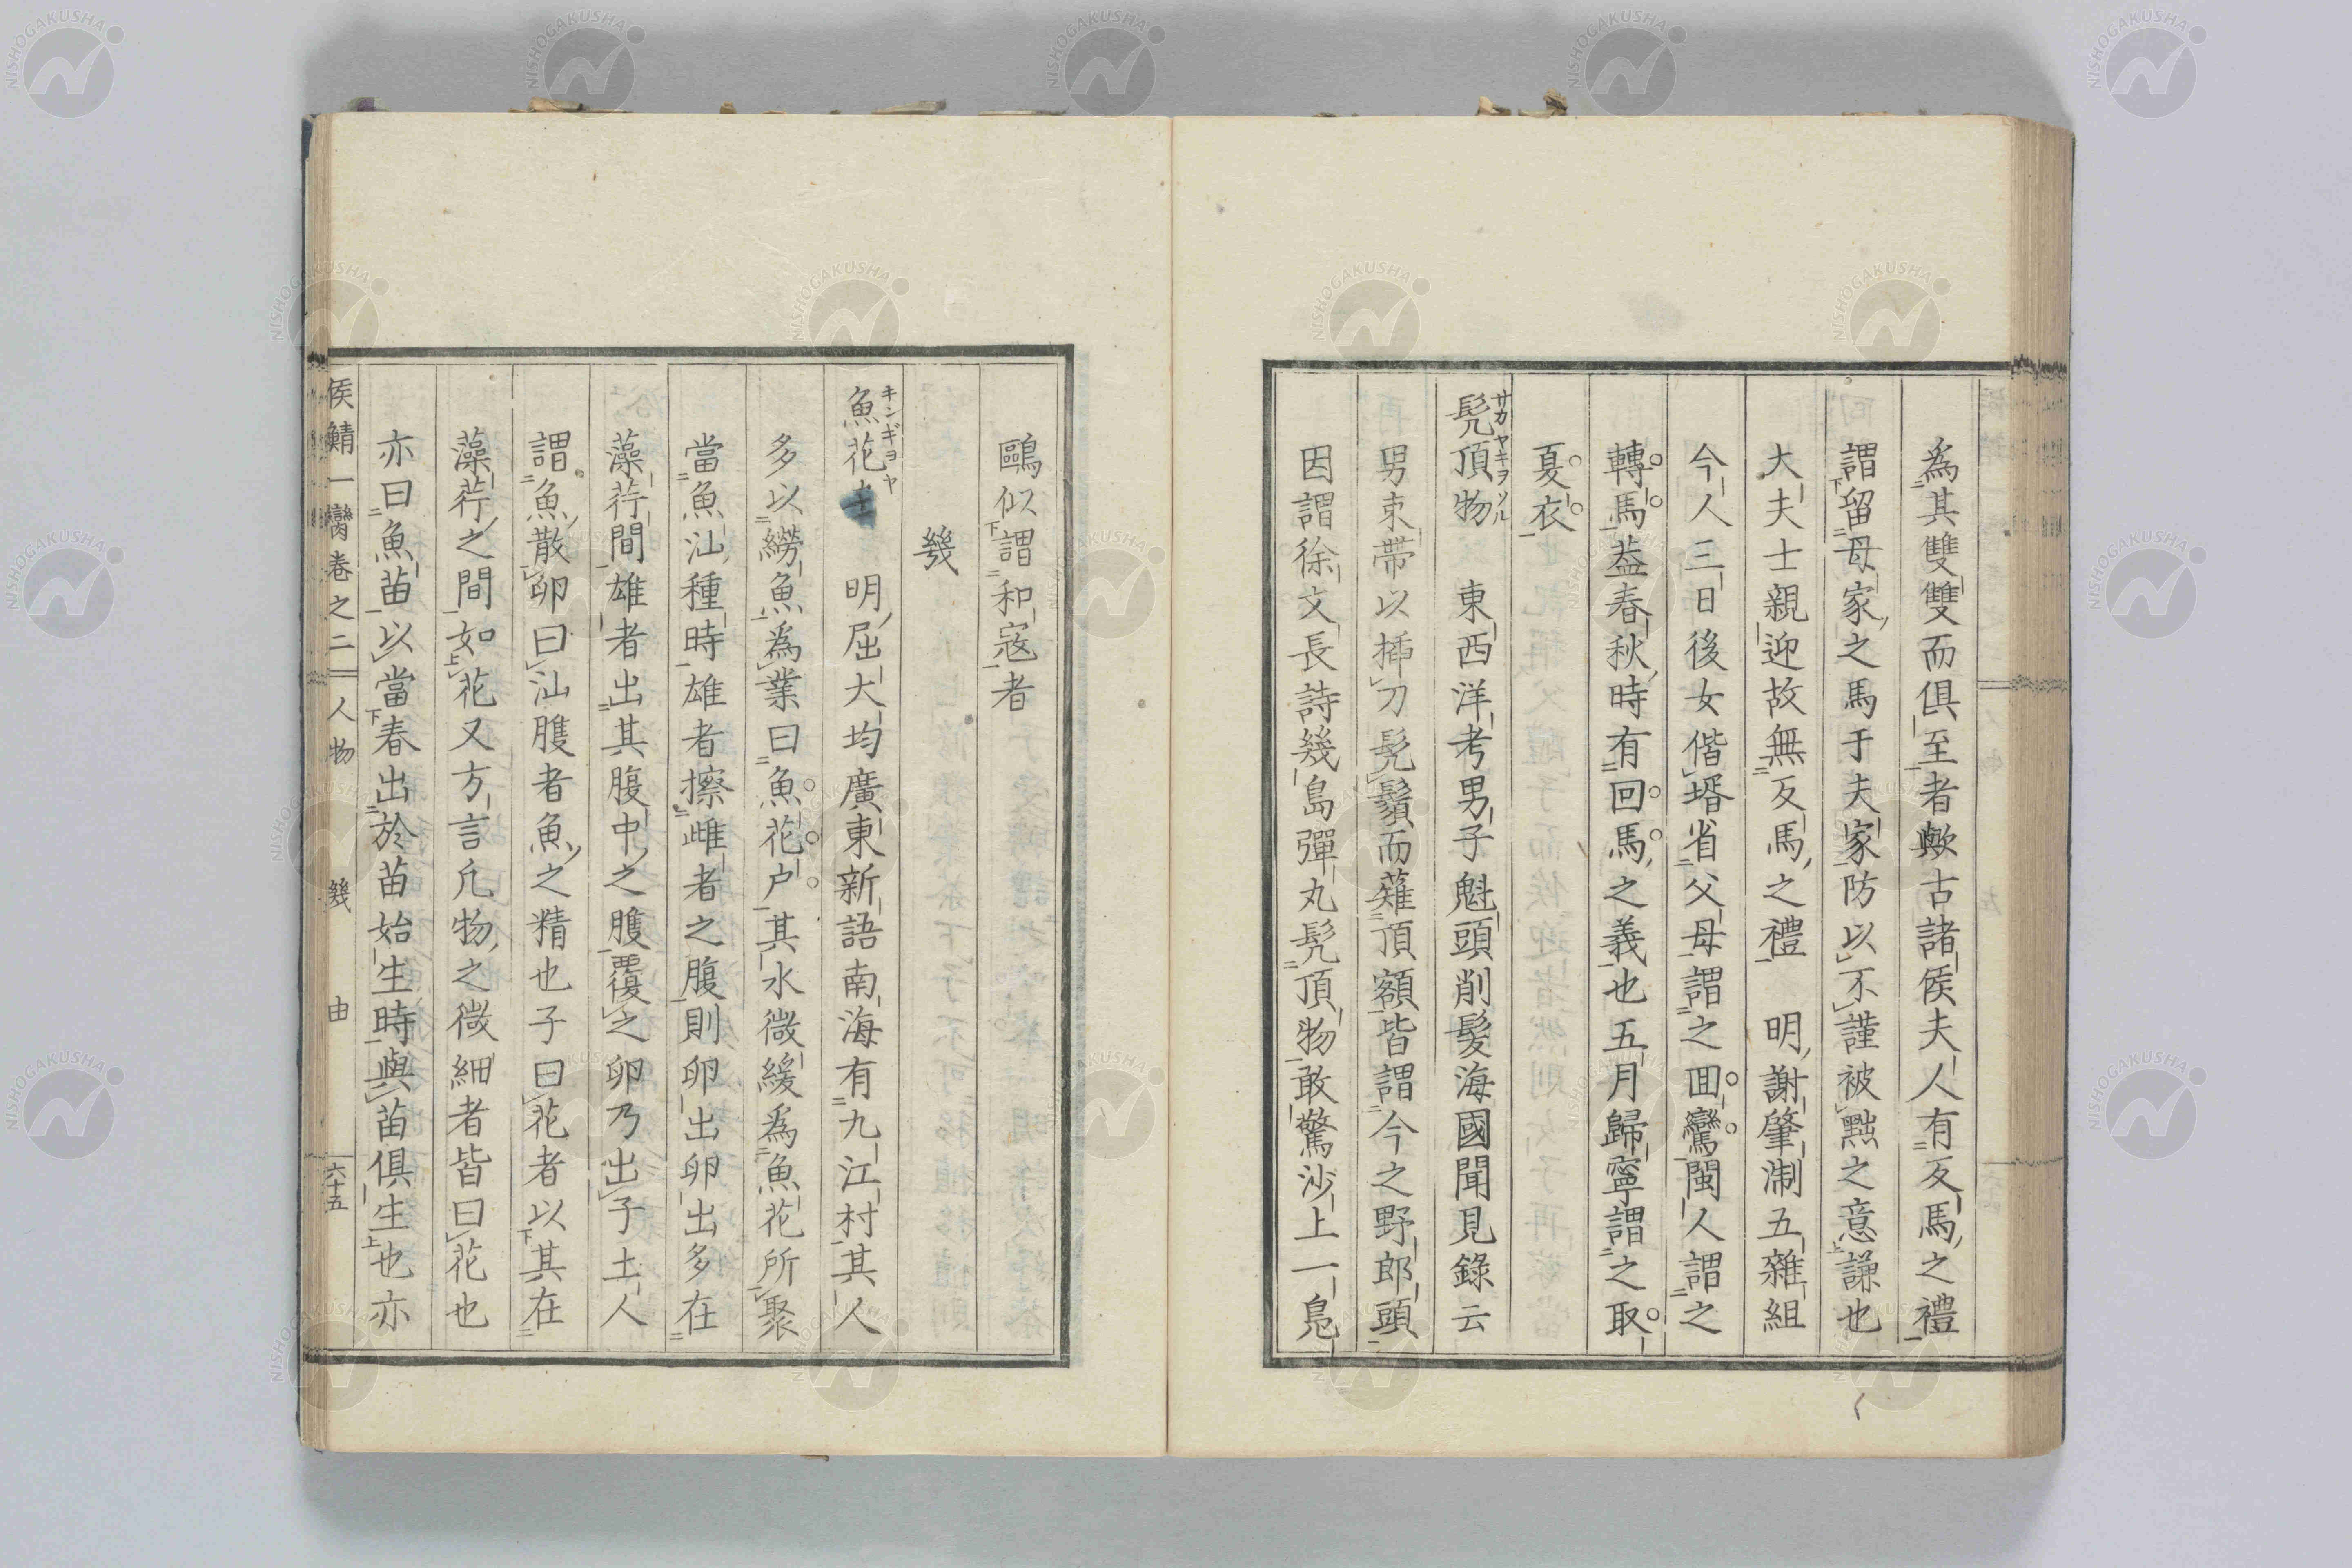 為其雙雙而俱至者歟古諸侯夫人有反馬之禮
謂留母家之馬于夫家防以不謹被黜之意謙也
大夫士親迎故無反馬之禮 明謝肇淛五雜組
今人三日後女偕壻省父母謂之囬鸞閩人謂之
轉馬葢春秋時有回馬之義也五月歸寧謂之取
夏衣
髠頂物 東西洋考男子魁頭削髮海國聞見錄云
サカヤキヲソル
男束帶以揷刀髠鬚而薙頂額皆謂今之野郎頭
因謂徐文長詩幾島彈丸髠頂物敢驚沙上一鳬
鷗似謂和寇者
幾
魚花 明屈大均廣東新語南海有九江村其人
キンギヨヤ
多以撈魚為業曰魚花户其水微緩為魚花所聚
當魚汕種時雄者擦雌者之腹則卵出卵出多在
藻荇間雄者出其腹中之臒覆之卵乃出子土人
謂魚散卵曰汕臒者魚之精也子曰花者以其在
藻荇之間如花又方言凢物之微細者皆曰花也
亦曰魚苗以當春出於苗始生時與苗俱生也亦
侯鯖一臠卷之二 人物 幾 由 六十五
NISHOGAKUSHA